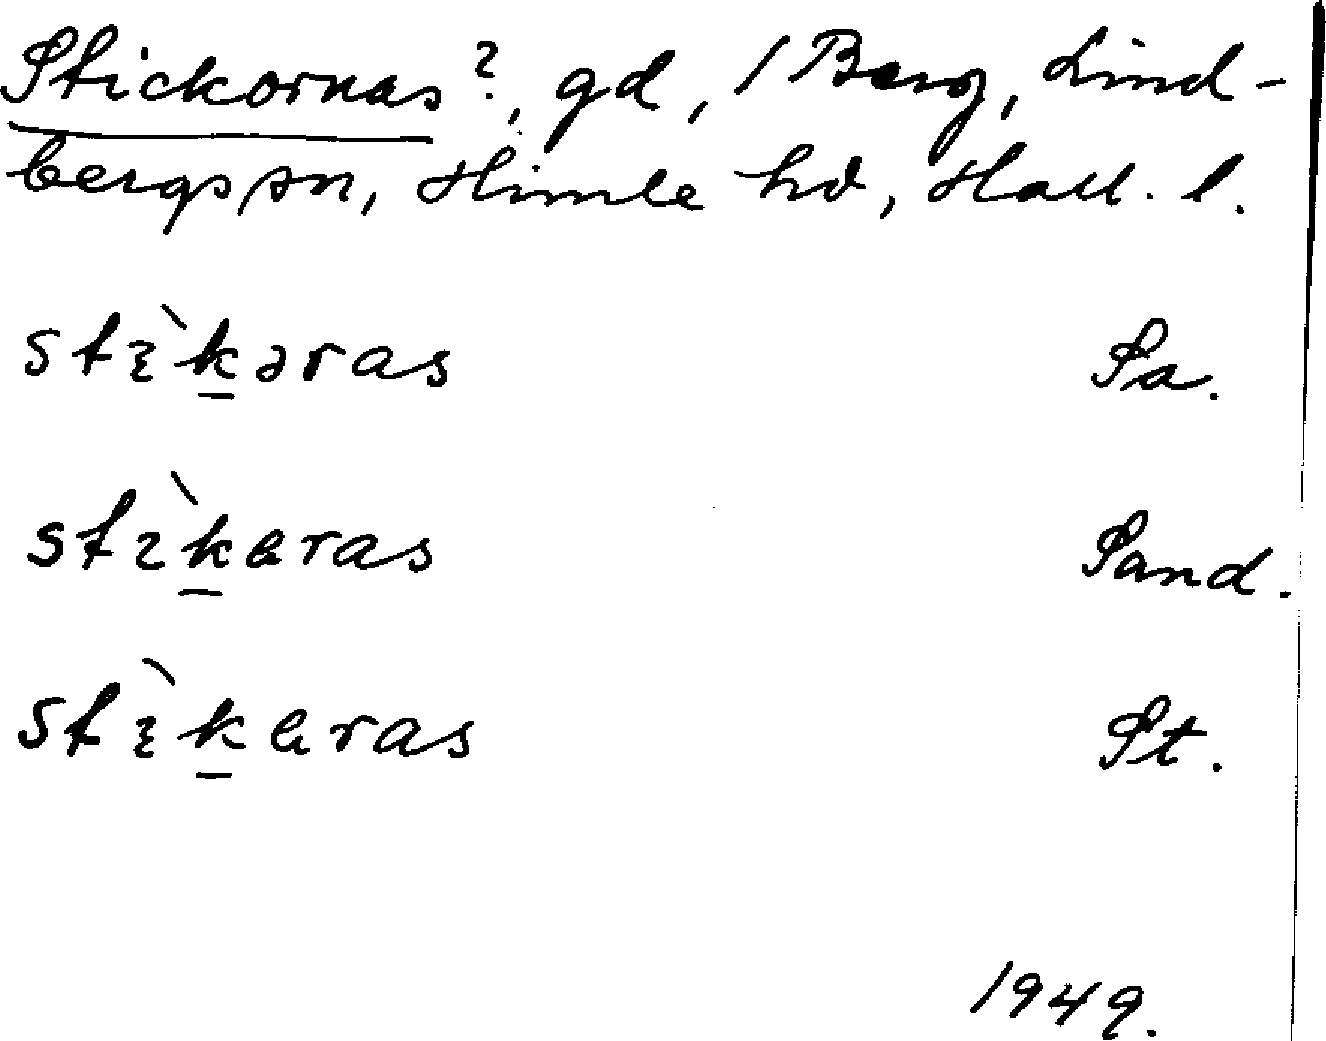 Stickornas?, gd, 1 Berg, Lind-
bergs sn, Himle hd, Hall. l.
stɩ̀k̲əras Sa.
stɩ̀k̲ɐras Sand.
stɩ̀k̲ɐras St.
1949.